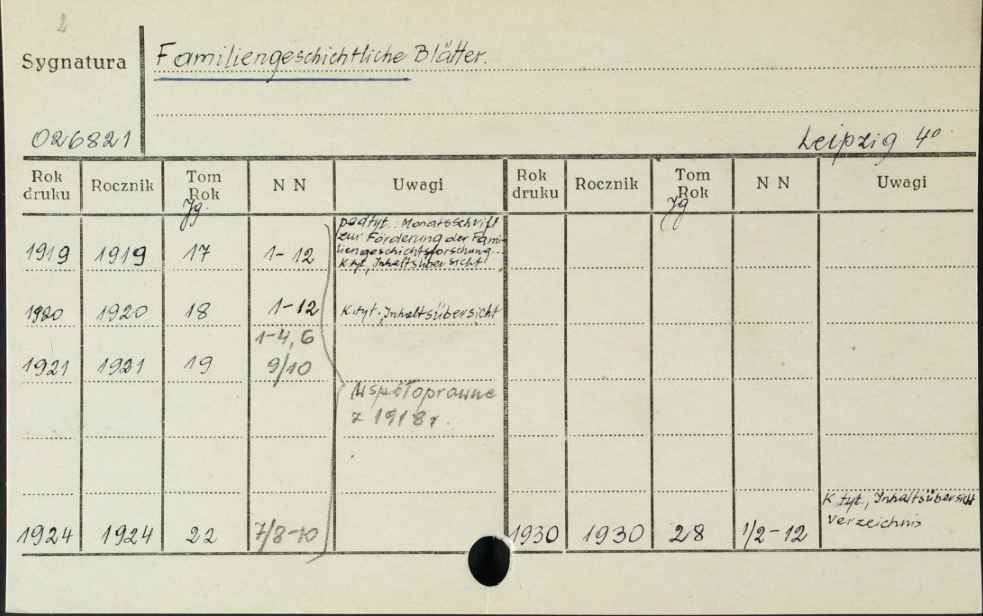 2
Sygnatura
Familiengeschichtliche Blätter.
026821
Leipzig 4º
Rok druku Rocznik Tom Rok N N Uwagi Rok druku Rocznik Tom Rok N N Uwagi
Jg. Jg
podtyt.: Monatsschrift
zur Förderung der Fami-
liengeschichtsforschung..
1919 1919 17 1-12 K. tyt., Inhaltsübersicht
1920 1920 18 1-12 K. tyt., Inhaltsübersicht
1-4, 6
1921 1921 19 9/10
Współoprawne
z 1918 r.
K. tyt., Inhaltsübersicht
Verzeichnis
1924 1924 22 7/8-10 1930 1930 28 1/2-12